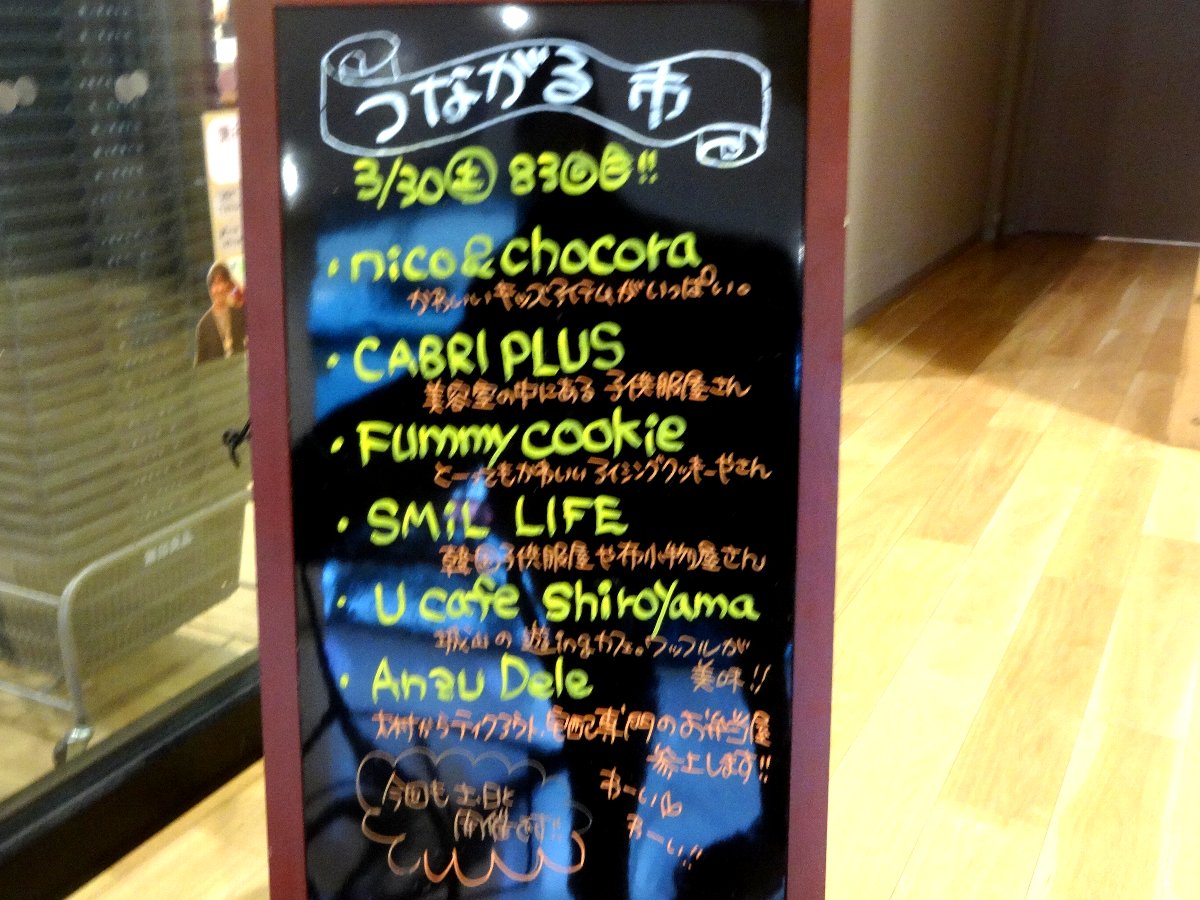 つながる 市
3/30㊏ 83回目!!
・nico&chocora
かわいいキッズアイテムがいっぱい。
・CABRI PLUS
美容室の中にある 子供服屋さん
・Fummy cookie
とーってもかわいいアイシングクッキーやさん
・SMiL LIFE
韓国子供服屋や布小物屋さん
・U cafe shiroyama
城山の遊ingカフェ。ワッフルが
美味!!
・Anzu Dele
大村からテイクアウト、宅配専門のお弁当屋
参上します!!
今回も土、日と
開催です!!
わーいわーい!!